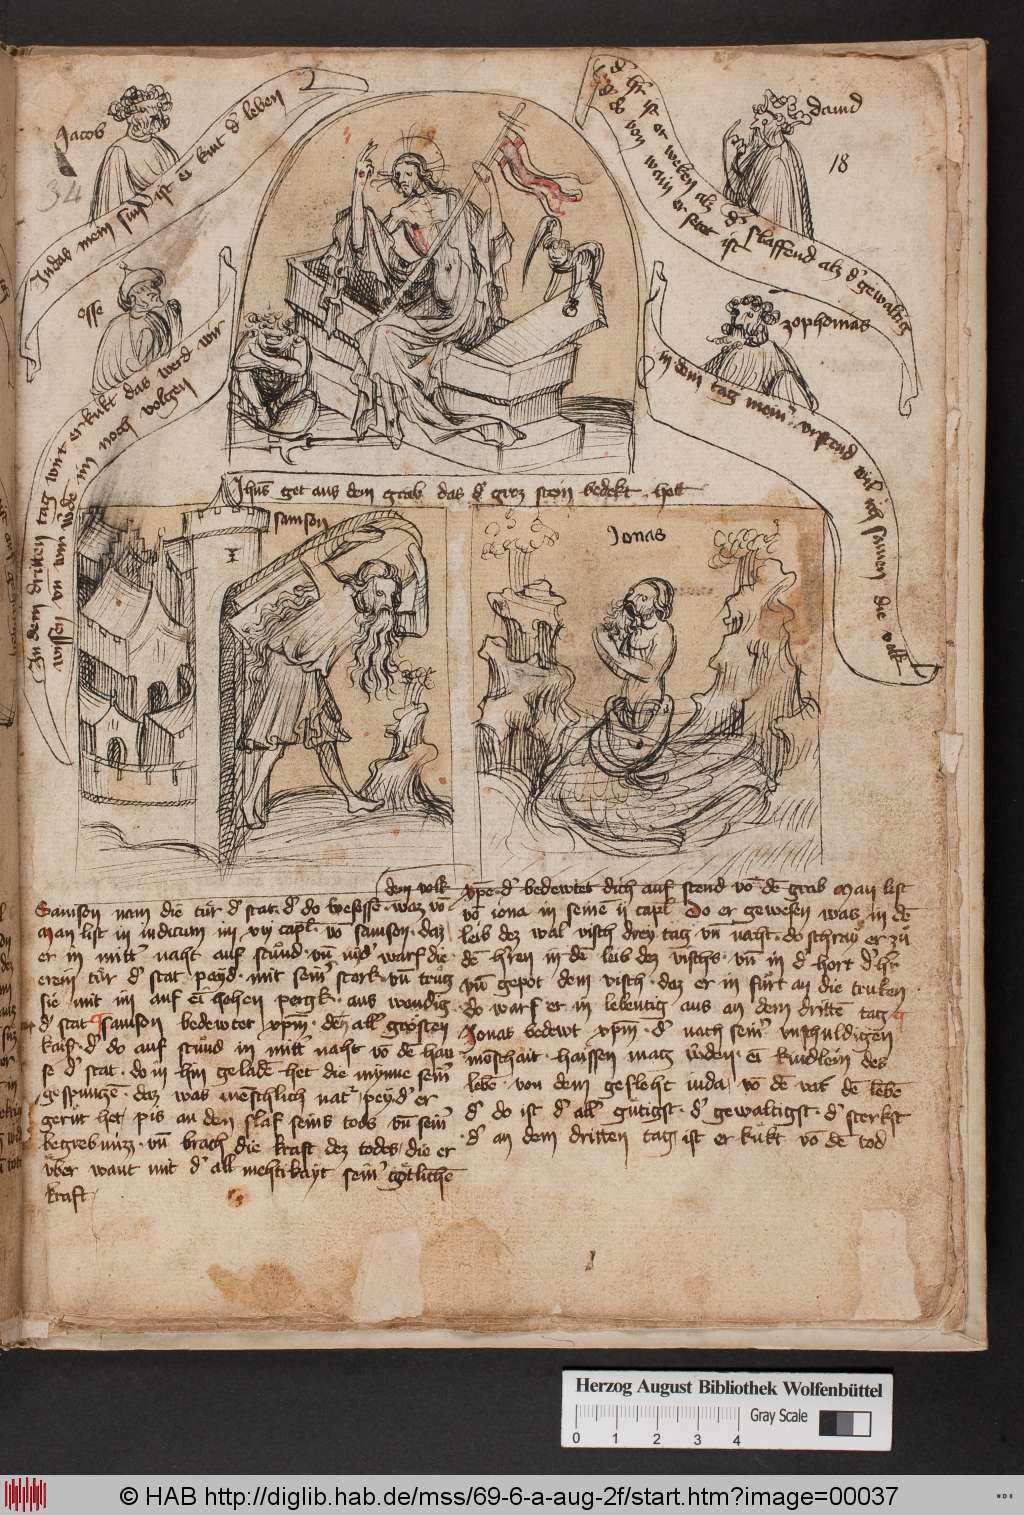 Jacob
34
Judas mein sun ist ei kint d' leben
dauid
18
d' h'r ist er weken alz d' slaffend alz d' gewaltig
osse
In dem dritten tag wirt er kukt das werd wir
wissen vn wir w'de im noch volgen
zophonias
in dem tag mein' vrstend wil ich samen die volk
Jhus get aus dem grab das d' groz stein bedekt hett
samson
Jonas
dem volk
Samson nam die tür d' stat d' do besessē waz vō
Man list in iudicum im xvj capl' vō Samson daz
er in mitt' naht auf stuond vnd warf die
erein tür d' stat payd mit sein' sterk vn truog
sie mit im auf ei hohen pergk aus wendig
d' stat Samson bedewtet xpm den all' grösten
d' do auf stuond in mitt' naht vō de hau
se d' stat do in hin geladē het die mynne sein'
gespunczē daz was menschlich nat' peyd' er
gerüt het pis an den slaf seins tods vn sein'
begrebnuzz vn brach die kraft dez todes die er
vber want mit d' all mehtikayt sein' götlichē
kraft
xpē d' bedewtet dich auf stend vō dē grab Man list
vō iona in seinē ij capl' Do er gewesen was in dē
leib dez wal visch drey tag vn naht do schray er zuo
dē h'ren in dē leib dez vischs vn in d' hort d' h'r
vn gepot dem visch daz er in fürt an die truken
do warf er in lebentig aus an dem drittē tag
Jonas bedewt xpm d' nach sein' vnschuldigen
menschait haissen mag w'den ei kindlein des
lebē von dem gesleht iuda vō dē vat' dē lebē
d' do ist d' all' gütigst d' gewaltigst d' sterkst
d' an dem dritten tag ist er kükt vō dē tod
Herzog August Bibliothek Wolfenbüttel
Gray Scale
0 1 2 3 4
© HAB http://diglib.hab.de/mss/69-6-a-aug-2f/start.htm?image=00037